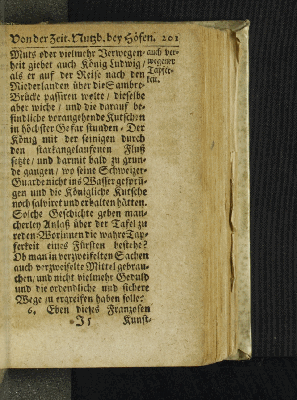 Von der Zeit-Nutzb. bey Höfen. 201
Muts oder vielmehr Verwegen-
heit giebet auch König Ludwig/
als er auf der Reise nach den
Niederlanden über die Sambre-
Brücke passiren wolte / dieselbe
aber wiche / und die darauf be-
findliche vorangehende Kutschen
in höchster Gefar stunden. Der
König mit der seinigen durch
den starkangelaufenen Fluß
setzte / und darmit bald zu grun-
de gangen / wo seine Schweizer-
Guarde nicht ins Wasser gesprun-
gen und die Königliche Kutsche
noch salviret und erhalten hätten.
Solche Geschichte geben man-
cherley Anlaß über der Tafel zu
reden: Worinnen die wahre Tap-
ferkeit eines Fürsten bestehe?
Ob man in verzweifelten Sachen
auch verzweifelte Mittel gebrau-
chen, und nicht vielmehr Geduld
und die ordendliche und sichere
Wege zu ergreifen haben solle?
6. Eben dieses Franzosen
*I 5 Kunst-
auch ver-
wegener
Tapfer-
keit.